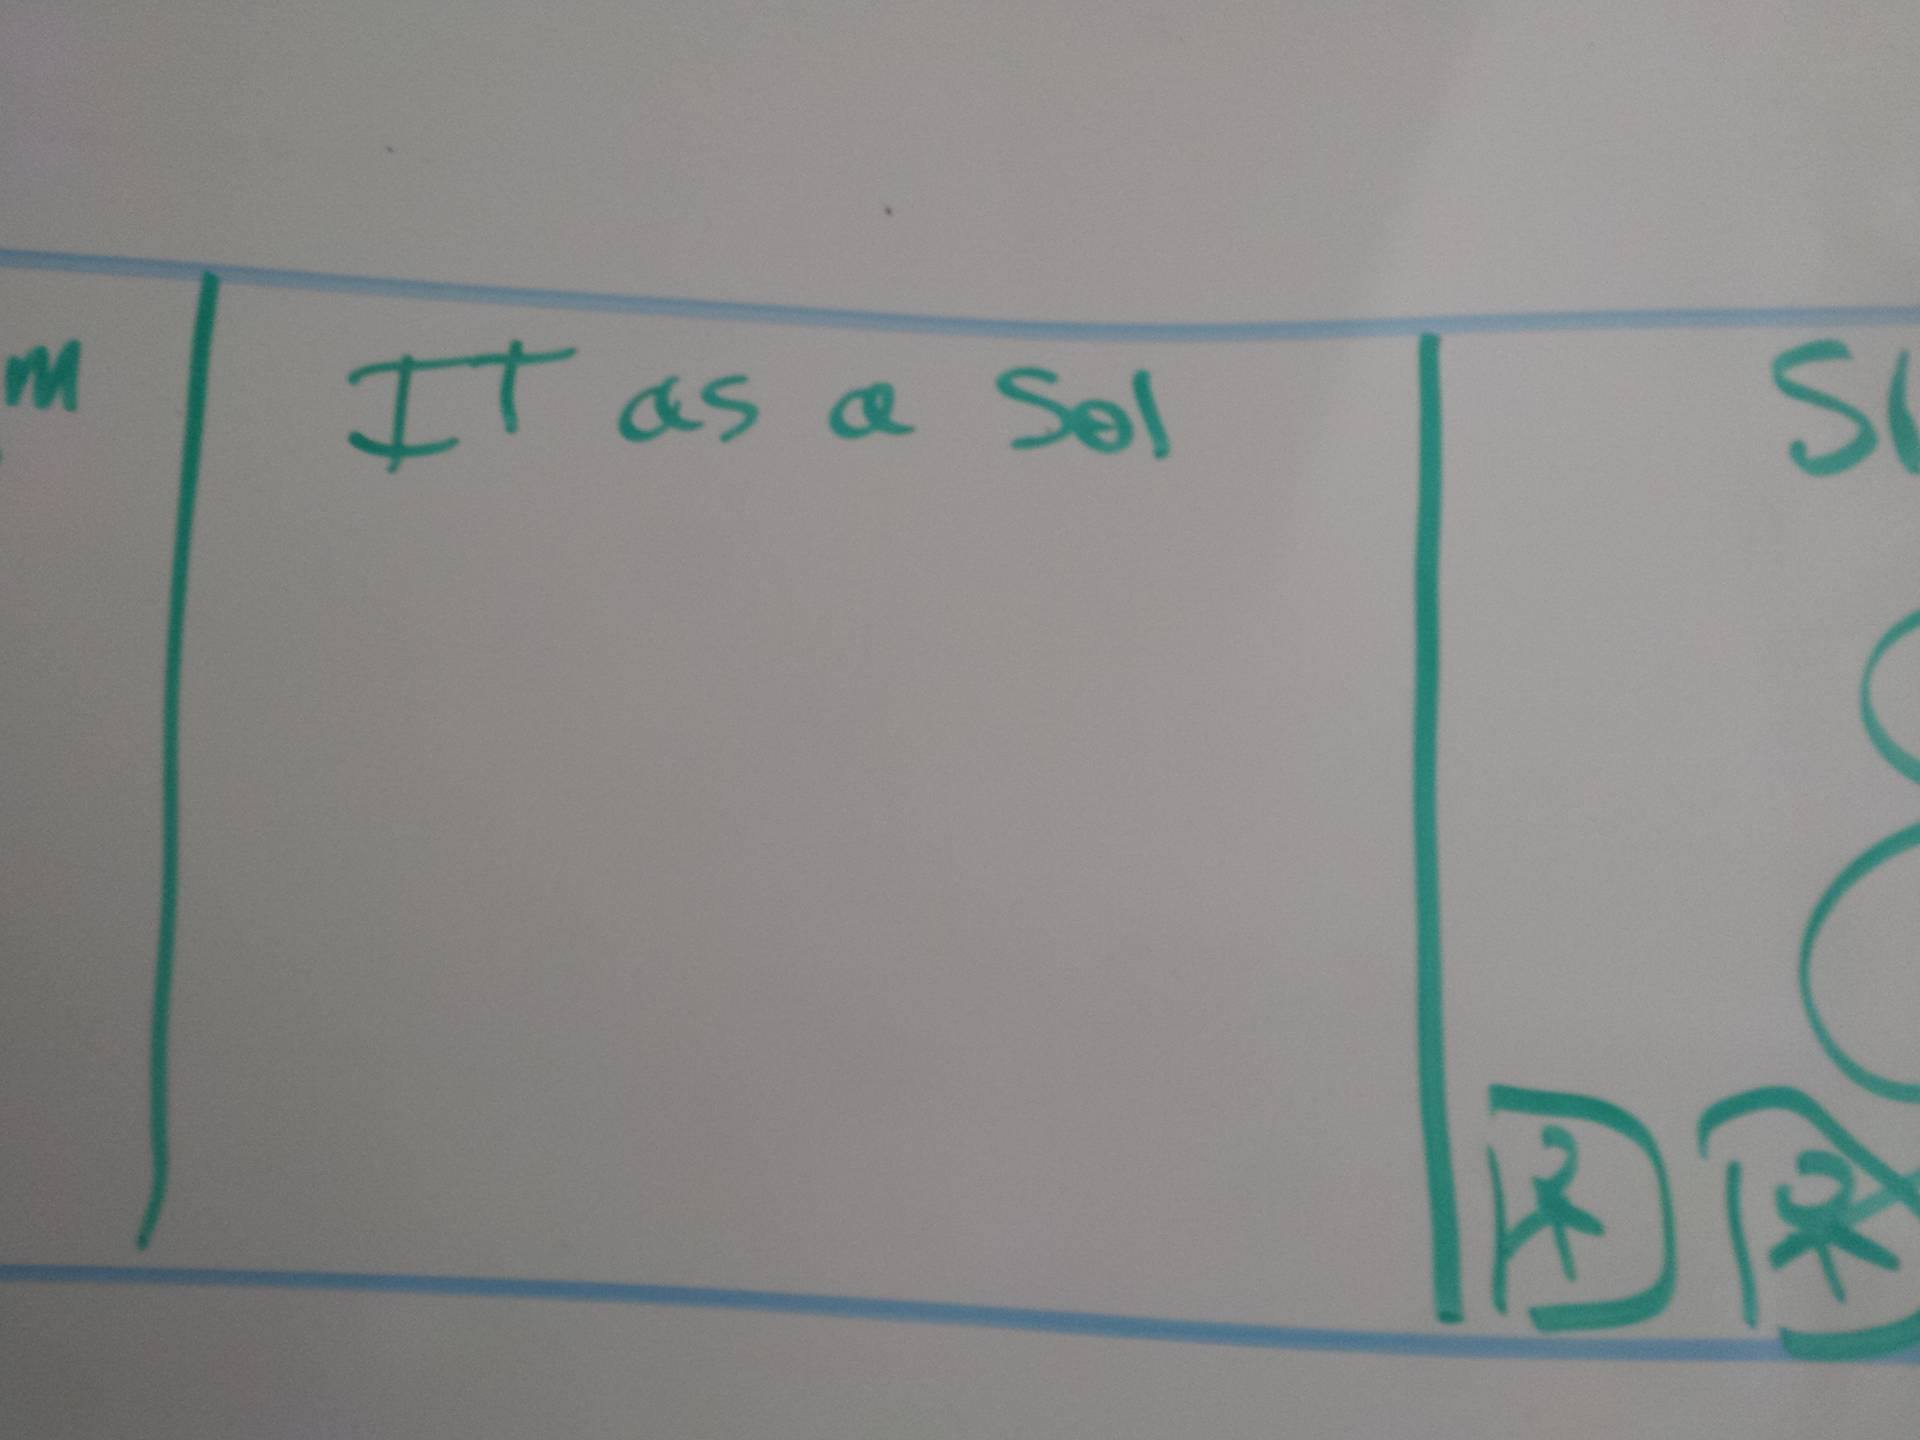 m
IT as a Sol